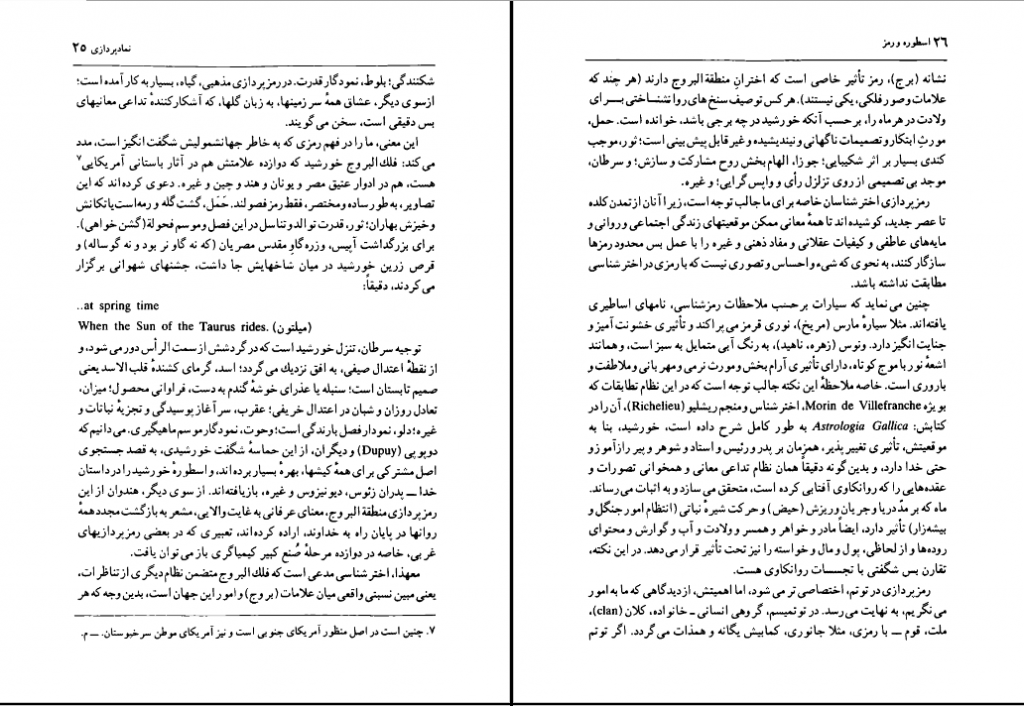 نمادپردازی ۲۵
شکنندگی؛ بلوط، نمودگار قدرت. در رمزپردازی مذهبی، گیاه، بسیار به کار آمده است؛
ازسوی دیگر، عشاق همهٔ سرزمینها، به زبان گلها، که آشکارکنندهٔ تداعی معانیهای
بس دقیقی است، سخن می‌گویند.
این معنی، ما را در فهم رمزی که به خاطر جهانشمولیش شگفت انگیز است، مدد
می‌کند: فلك البروج خورشید که دوازده علامتش هم در آثار باستانی آمریکایی۷
هست، هم در ادوار عتیق مصر و یونان و هند و چین و غیره. دعوی کرده‌اند که این
تصاویر، به طور ساده ومختصر، فقط رمز فصولند. حَمَل، گشت گله و رمه‌است یا تکانش
وخیزش بهاران؛ ثور، قدرت توالد و تناسل در این فصل و موسم فحولة (گشن خواهی).
برای بزرگداشت آپیس، ورزه گاوِ مقدس مصریان (که نه گاو نر بود و نه گوساله) و
قرص زرین خورشید در میان شاخهایش جا داشت، جشنهای شهوانی برگزار
می‌کردند، دقیقاً:
..at spring time
When the Sun of the Taurus rides. (میلتون)
توجیه سرطان، تنزل خورشید است که در گردشش از سمت الرأس دور می‌شود، و
از نقطهٔ اعتدال صیفی، به افق نزدیك می‌گردد؛ اسد، گرمای کشندهٔ قلب الاسد یعنی
صمیم تابستان است؛ سنبله یا عذرای خوشهٔ گندم به دست، فراوانی محصول؛ میزان،
تعادل روزان و شبان در اعتدال خریفی؛ عقرب، سرآغاز پوسیدگی و تجزیهٔ نباتات و
غیره؛ دلو، نمودار فصل بارندگی است؛ وحوت، نمودگار موسم ماهیگیری. می‌دانیم که
دوپویی (Dupuy) و دیگران، از این حماسهٔ شگفت خورشیدی، به قصد جستجوی
اصل مشترکی برای همهٔ کیشها، بهرهٔ بسیار برده‌اند، و اسطورهٔ خورشید را در داستان
خدا ــ پدران زئوس، دیونیزوس و غیره، بازیافته‌اند. از سوی دیگر، هندوان از این
رمزپردازی منطقة البروج، معنای عرفانی به غایت والایی، مشعر به بازگشت مجدد همهٔ
روانها در پایان راه به خداوند، اراده کرده‌اند، تعبیری که در بعضی رمزپردازیهای
غربی، خاصه در دوازده مرحلهٔ صُنع کبیر کیمیاگری باز می‌توان یافت.
معهذا، اختر شناسی مدعی است که فلك البروج متضمن نظام دیگری از تناظرات،
یعنی مبین نسبتی واقعی میان علامات (بروج) و امور این جهان است، بدین وجه که هر
۷. چنین است در اصل منظور آمریکای جنوبی است و نیز آمریکای موطن سرخپوستان. ــ م.
۲۶ اسطوره و رمز
نشانه (برج)، رمز تأثیر خاصی است که اختران منطقة البروج دارند (هر چند که
علامات و صور فلکی، یکی نیستند). هر کس توصیف سنخ‌های روانشناختی بـرای
ولادت در هر ماه را، بر حسب آنکه خورشید در چه برجی باشد، خوانده است. حمل،
مورثِ ابتکار و تصمیمات ناگهانی و نیندیشیده و غیر قابل پیش بینی است؛ ثور، موجب
کندی بسیار بر اثر شکیبایی؛ جوزا، الهام بخش روح مشارکت و سازش؛ و سرطان،
موجد بی تصمیمی از روی تزلزل رأی و واپس گرایی؛ و غیره.
رمزپردازی اختر شناسان خاصه برای ما جالب توجه است، زیرا آنان از تمدن کلده
تا عصر جدید، کوشیده‌اند تا همهٔ معانی ممکن موقعیتهای زندگی اجتماعی و روانی و
مایه‌های عاطفی و کیفیات عقلانی و مفاد ذهنی و غیره را با عمل بس محدود رمزها
سازگار کنند، به نحوی که شیء و احساس و تصوری نیست که با رمزی در اختر شناسی
مطابقت نداشته باشد.
چنین می‌نماید که سیارات بر حسب ملاحظات رمزشناسی، نامهای اساطیری
یافته‌اند. مثلا سیارهٔ مارس (مریخ)، نوری قرمز می‌پراکند و تأثیری خشونت آمیز و
جنایت انگیز دارد. ونوس (زهره، ناهید)، به رنگ آبی متمایل به سبز است، و همانند
اشعهٔ نور با موج کوتاه، دارای تأثیری آرام بخش و مورث نرمی و مهربانی و ملاطفت و
باروری است. خاصه ملاحظهٔ این نکته جالب توجه است که در این نظام تطابقات که
بویژه Morin de Villefranche، اختر شناس و منجم ریشلیو (Richelieu)، آن را در
کتابش: Astrologia Gallica به طور کامل شرح داده است، خورشید، بنا به
موقعیتش، تأثیری تغییر پذیر، همزمان بر پدر و رئیس و استاد و شوهر و پیر رازآموز و
حتی خدا دارد، و بدین گونه دقیقاً همان نظام تداعی معانی و همخوانی تصورات و
عقده‌هایی را که روانکاوی آفتابی کرده است، متحقق می‌سازد و به اثبات می‌رساند.
ماه که بر مدّ دریا و جریان و ریزش (حیض) و حرکت شیرهٔ نباتی (انتظام امور جنگل و
بیشه‌زار) تأثیر دارد، ایضاً مادر و خواهر و همسر و ولادت و آب و گوارش و محتوای
روده‌ها و از لحاظی، پول و مال و خواسته را نیز تحت تأثیر قرار می‌دهد. در این نکته،
تقارن بس شگفتی با تجسسات روانکاوی هست.
رمزپردازی در توتم، اختصاصی تر می‌شود، اما اهمیتش، از دیدگاهی که ما به امور
می‌نگریم، به نهایت می‌رسد. در توتمیسم، گروهی انسانی ـ خانواده، کلان (clan)،
ملت، قوم ــ با رمزی، مثلا جانوری، کمابیش یگانه و همذات می‌گردد. اگر توتم